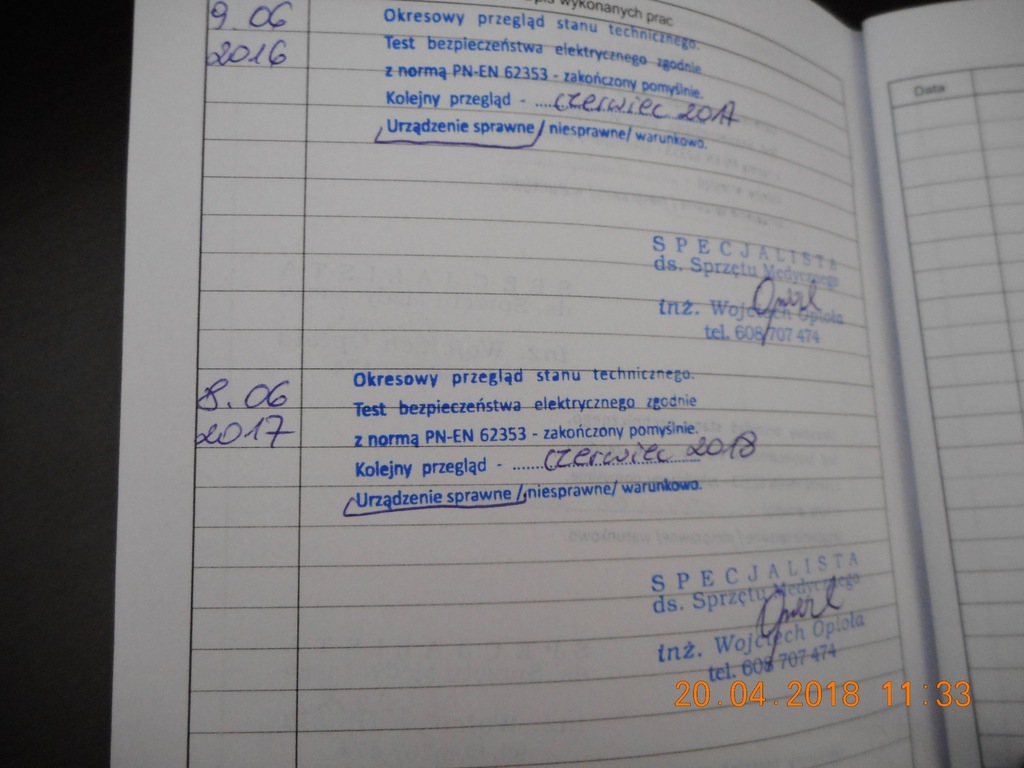 opis wykonanych prac
9.06
2016
Okresowy przegląd stanu technicznego.
Test bezpieczeństwa elektrycznego zgodnie
z normą PN-EN 62353 - zakończony pomyślnie.
Kolejny przegląd - ....czerwiec 2017
Urządzenie sprawne/ niesprawne/ warunkowo.
SPECJALISTA
ds. Sprzętu Medycznego
inż. Wojciech Opioła
tel. 608 707 474
8.06
2017
Okresowy przegląd stanu technicznego.
Test bezpieczeństwa elektrycznego zgodnie
z normą PN-EN 62353 - zakończony pomyślnie.
Kolejny przegląd - ......czerwiec 2018
Urządzenie sprawne/ niesprawne/ warunkowo.
SPECJALISTA
ds. Sprzętu Medycznego
inż. Wojciech Opioła
tel. 608 707 474
Data
20.04.2018 11:33